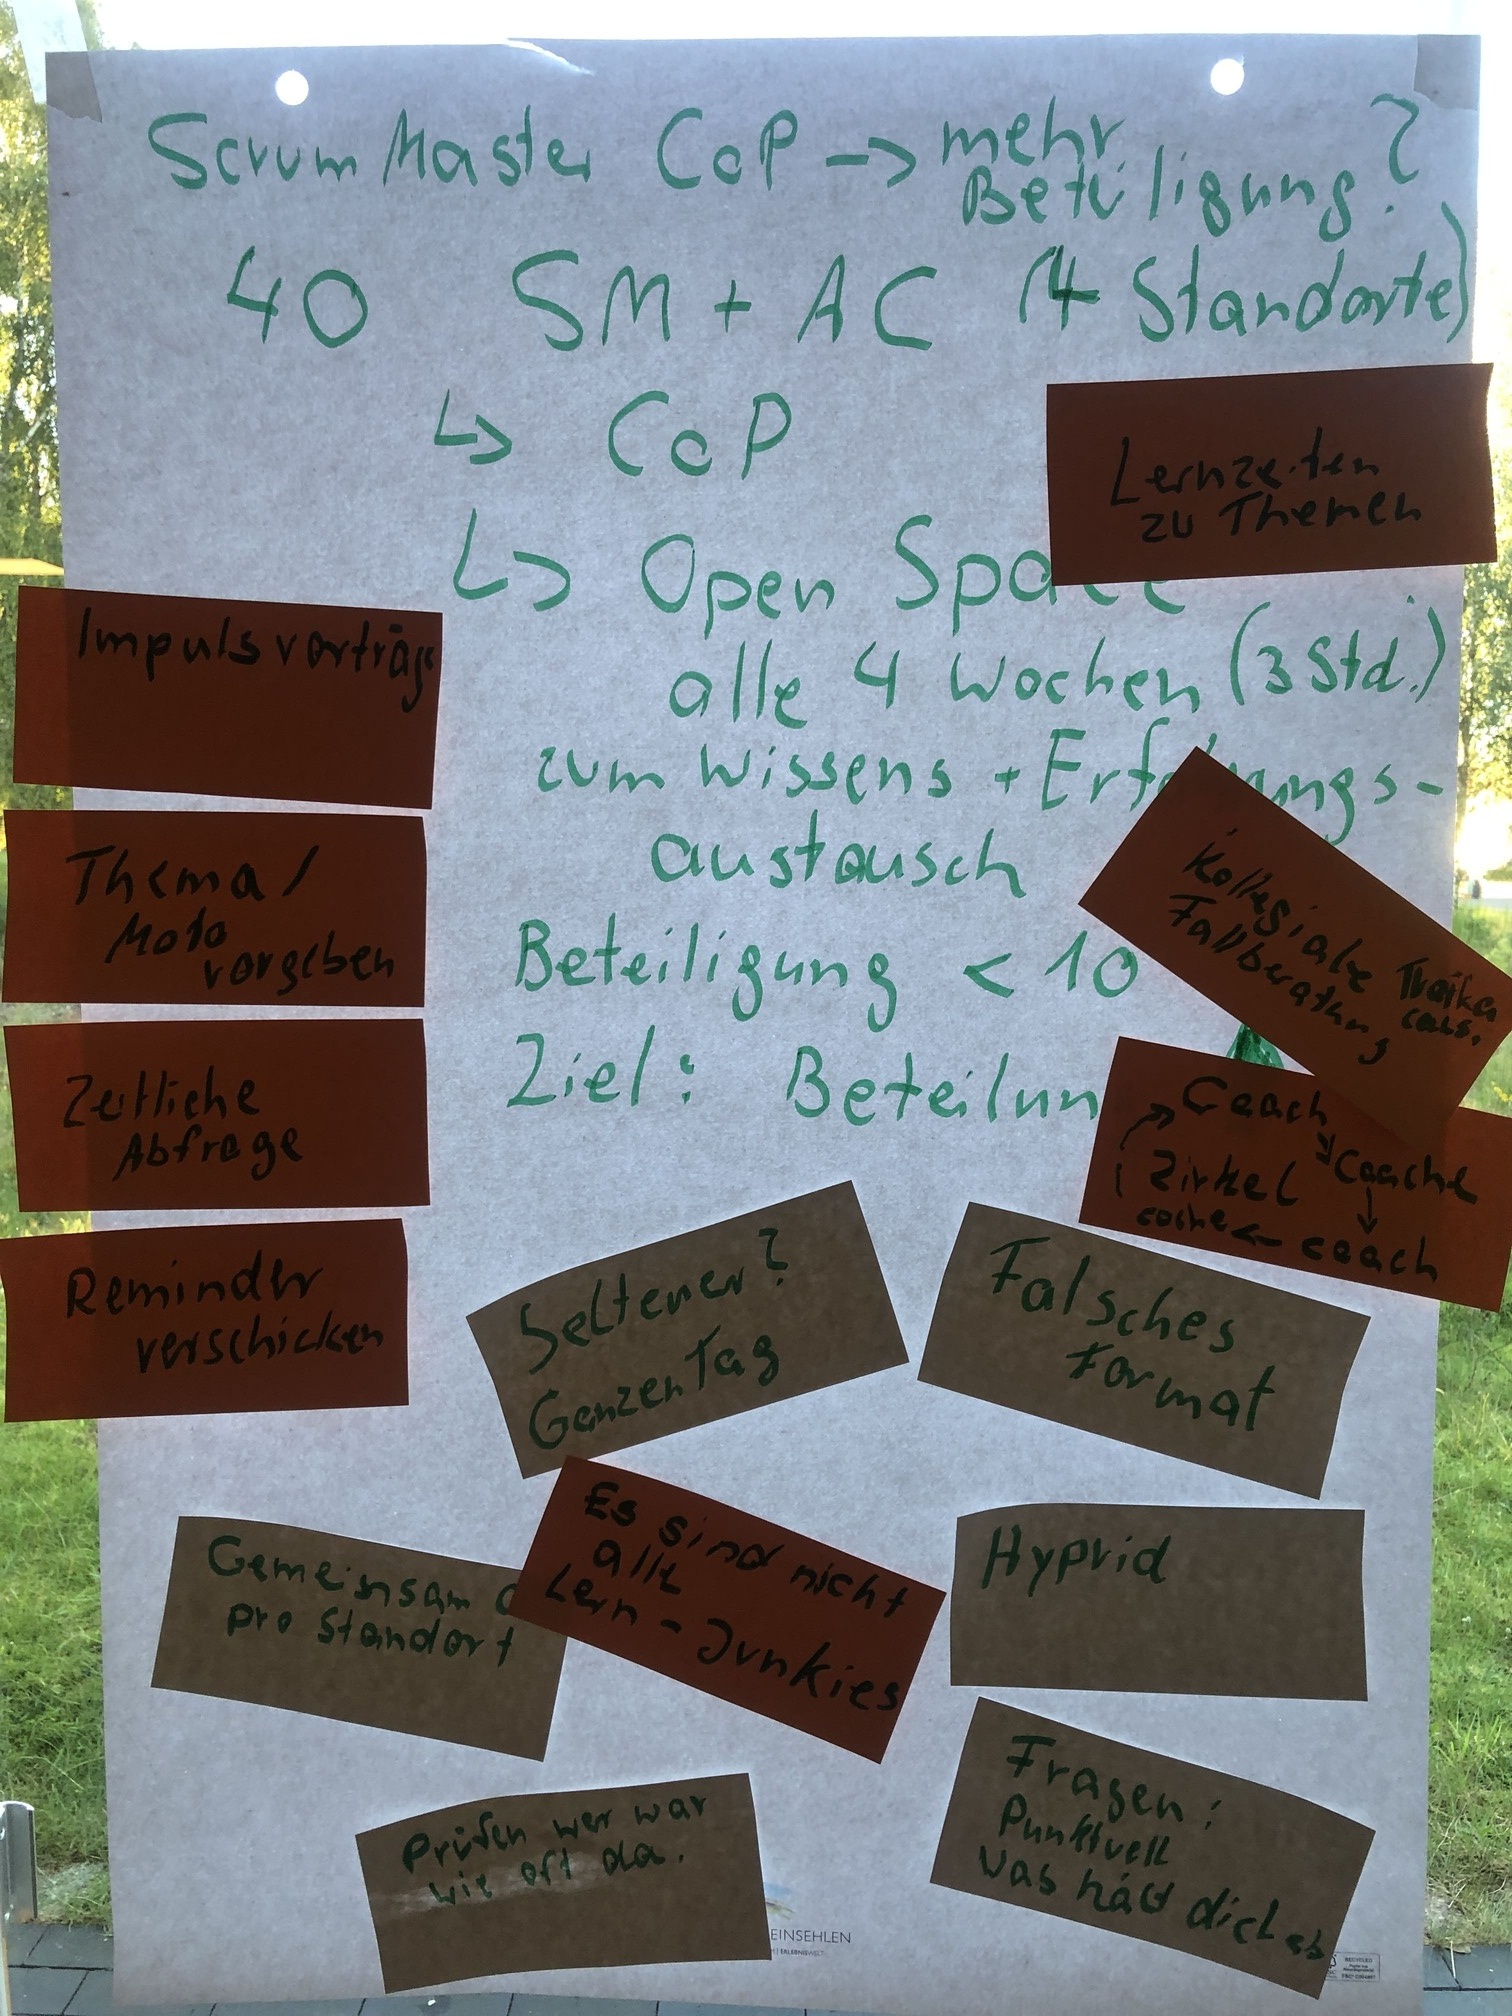 Scrum Master CoP -> mehr
Beteiligung?
40 SM + AC (4 Standorte)
↳ CoP
Lernzeiten
zu Themen
↳ Open Space
alle 4 Wochen (3 Std.)
zum Wissens + Erfahrungs-
austausch
Beteiligung < 10
Ziel: Beteilun
Impulsvorträge
Thema/
Moto
vorgeben
Zeitliche
Abfrage
Reminder
verschicken
Kollegiale
Fallberatung
Troika
cons.
Coach
Zirkel Coache
coche <- coach
Seltener?
Ganzen Tag
Falsches
Format
Gemeinsam
pro Standort
Es sind nicht
alle
Lern-Junkies
Hyprid
Prüfen wer war
wie oft da.
Fragen:
Punktuell
was hält dich ab
EINSEHLEN
ERLEBNISWELT
RECYCLED